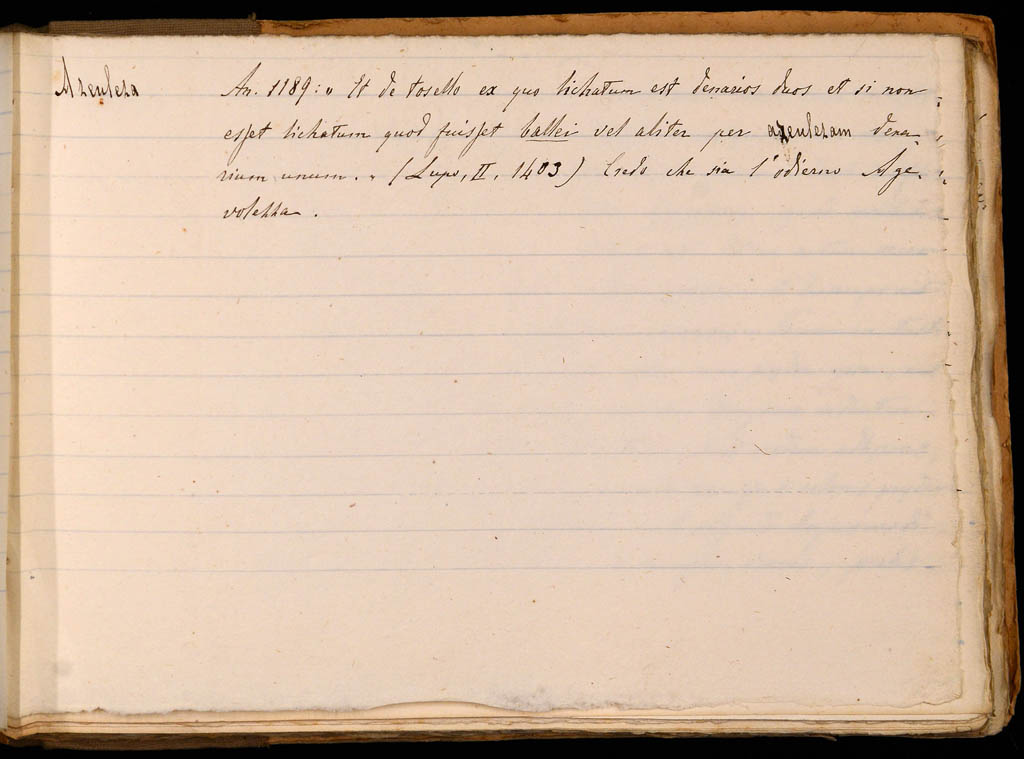 Azeuleza An. 1189: " Et de tosello ex quo lichatum est denarios duos et si non
esset lichatum quod fuisset ballei vel aliter per azeulezam dena-
rium unum. " (Lupo, II, 1403) Credo che sia l'odierno Age-
volezza.